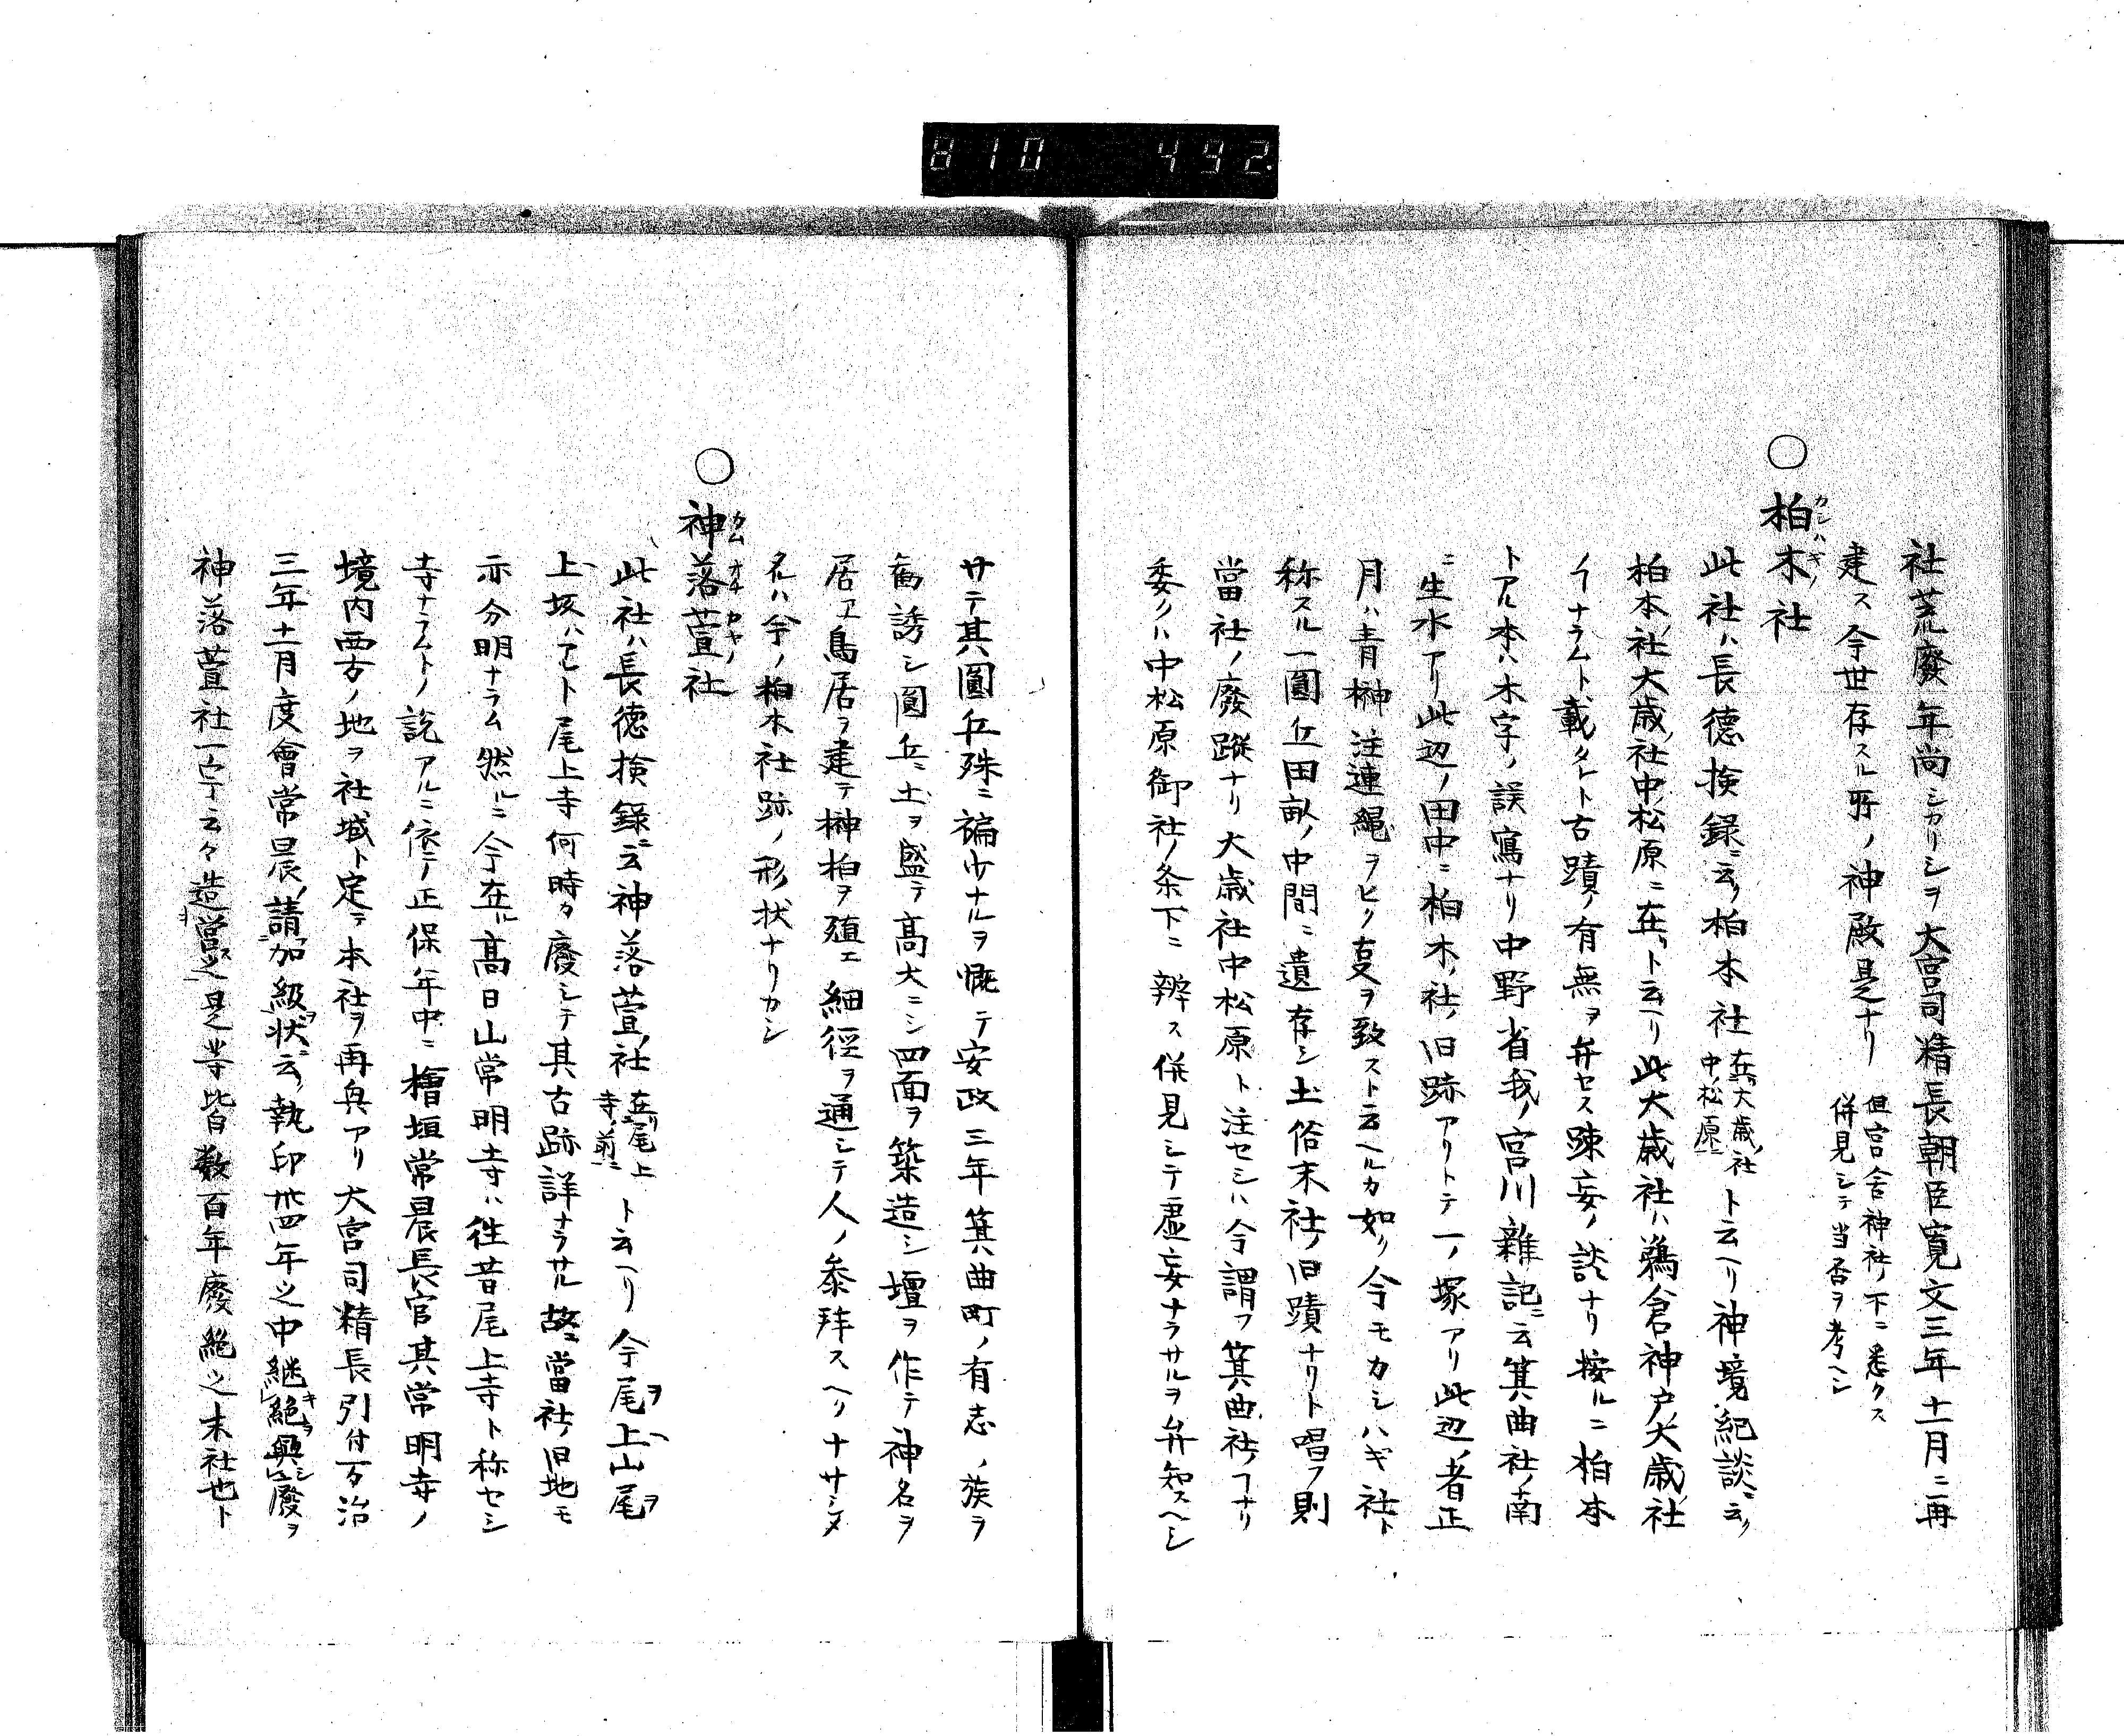 810 492.
社荒廢年尚シカリシヲ大宮司精長朝臣寛文三年十一月ニ再
建ス今世存スル所ノ神殿是ナリ 但宮舎神社ノ下ニ悉クス
併見シテ当否ヲ考ヘシ
○柏木社 カシハギノ
此社ハ長德検録ニ云ク柏本社 在大歳社
中松原ニ ト云ヘリ神境紀談ニ云ク
柏本社大歳社中松原ニ在リト云ヘリ此大歳社ハ鵜倉神戸大歳社
ノ丁ナラムト載タレト古蹟ノ有無ヲ弁セス疎妄ノ談ナリ按ルニ柏本
トアル本ハ木字ノ誤寫ナリ中野省我ノ宮川雜記ニ云箕曲社ノ南
ニ生水アリ此辺ノ田中ニ柏木ノ社ノ旧跡アリトテ一ノ塚アリ此辺ノ者正
月ハ青榊注連縄ヲヒク叓ヲ致スト云ヘルカ如ク今モカシハギ社ト
称スル一圓丘田畝ノ中間ニ遺存シ土俗末社ノ旧蹟ナリト唱フ則
當社ノ廢蹤ナリ大歳社中松原ト注セシハ今謂フ箕曲社ノ丁ナリ
委クハ中松原御社ノ条下ニ辨ス併見シテ虚妄ナラサルヲ弁知スヘシ
サテ其圓丘殊ニ褊少ナルヲ慨テ安政三年箕曲町ノ有志ノ族ラ
勧誘シ圓丘ニ土ヲ盛テ高大ニシ四面ヲ築造シ壇ヲ作テ神名ヲ
居ヱ鳥居ヲ建テ榊柏ヲ殖エ細徑ヲ通シテ人ノ参拝スヘクナサシメ
タルハ今ノ柏木社跡ノ形状ナリカシ
○神落萱社 カムオチカヤノ
此社ハ長徳検録ニ云神落萱社 在尾上
寺前ニ ト云ヘリ今尾上山尾
上坂ハアレト尾上寺何時カ廢シテ其古跡詳ナラサル故ニ當社ノ旧地モ
亦分明ナラム然ルニ今在ル高日山常明寺ハ往昔尾上寺ト称セシ
寺ナラムトノ説アルニ依テノ正保年中ニ檜垣常晨長官其常明寺ノ
境内西方ノ地ヲ社域ト定テ本社ヲ再興アリ大宮司精長引付万治
三年十一月度會常晨請加級状ニ云ク執印卅四年之中継絶興廢ヲ
神落萱社一宇云々造営之是等皆數百年廢絶之末社也ト